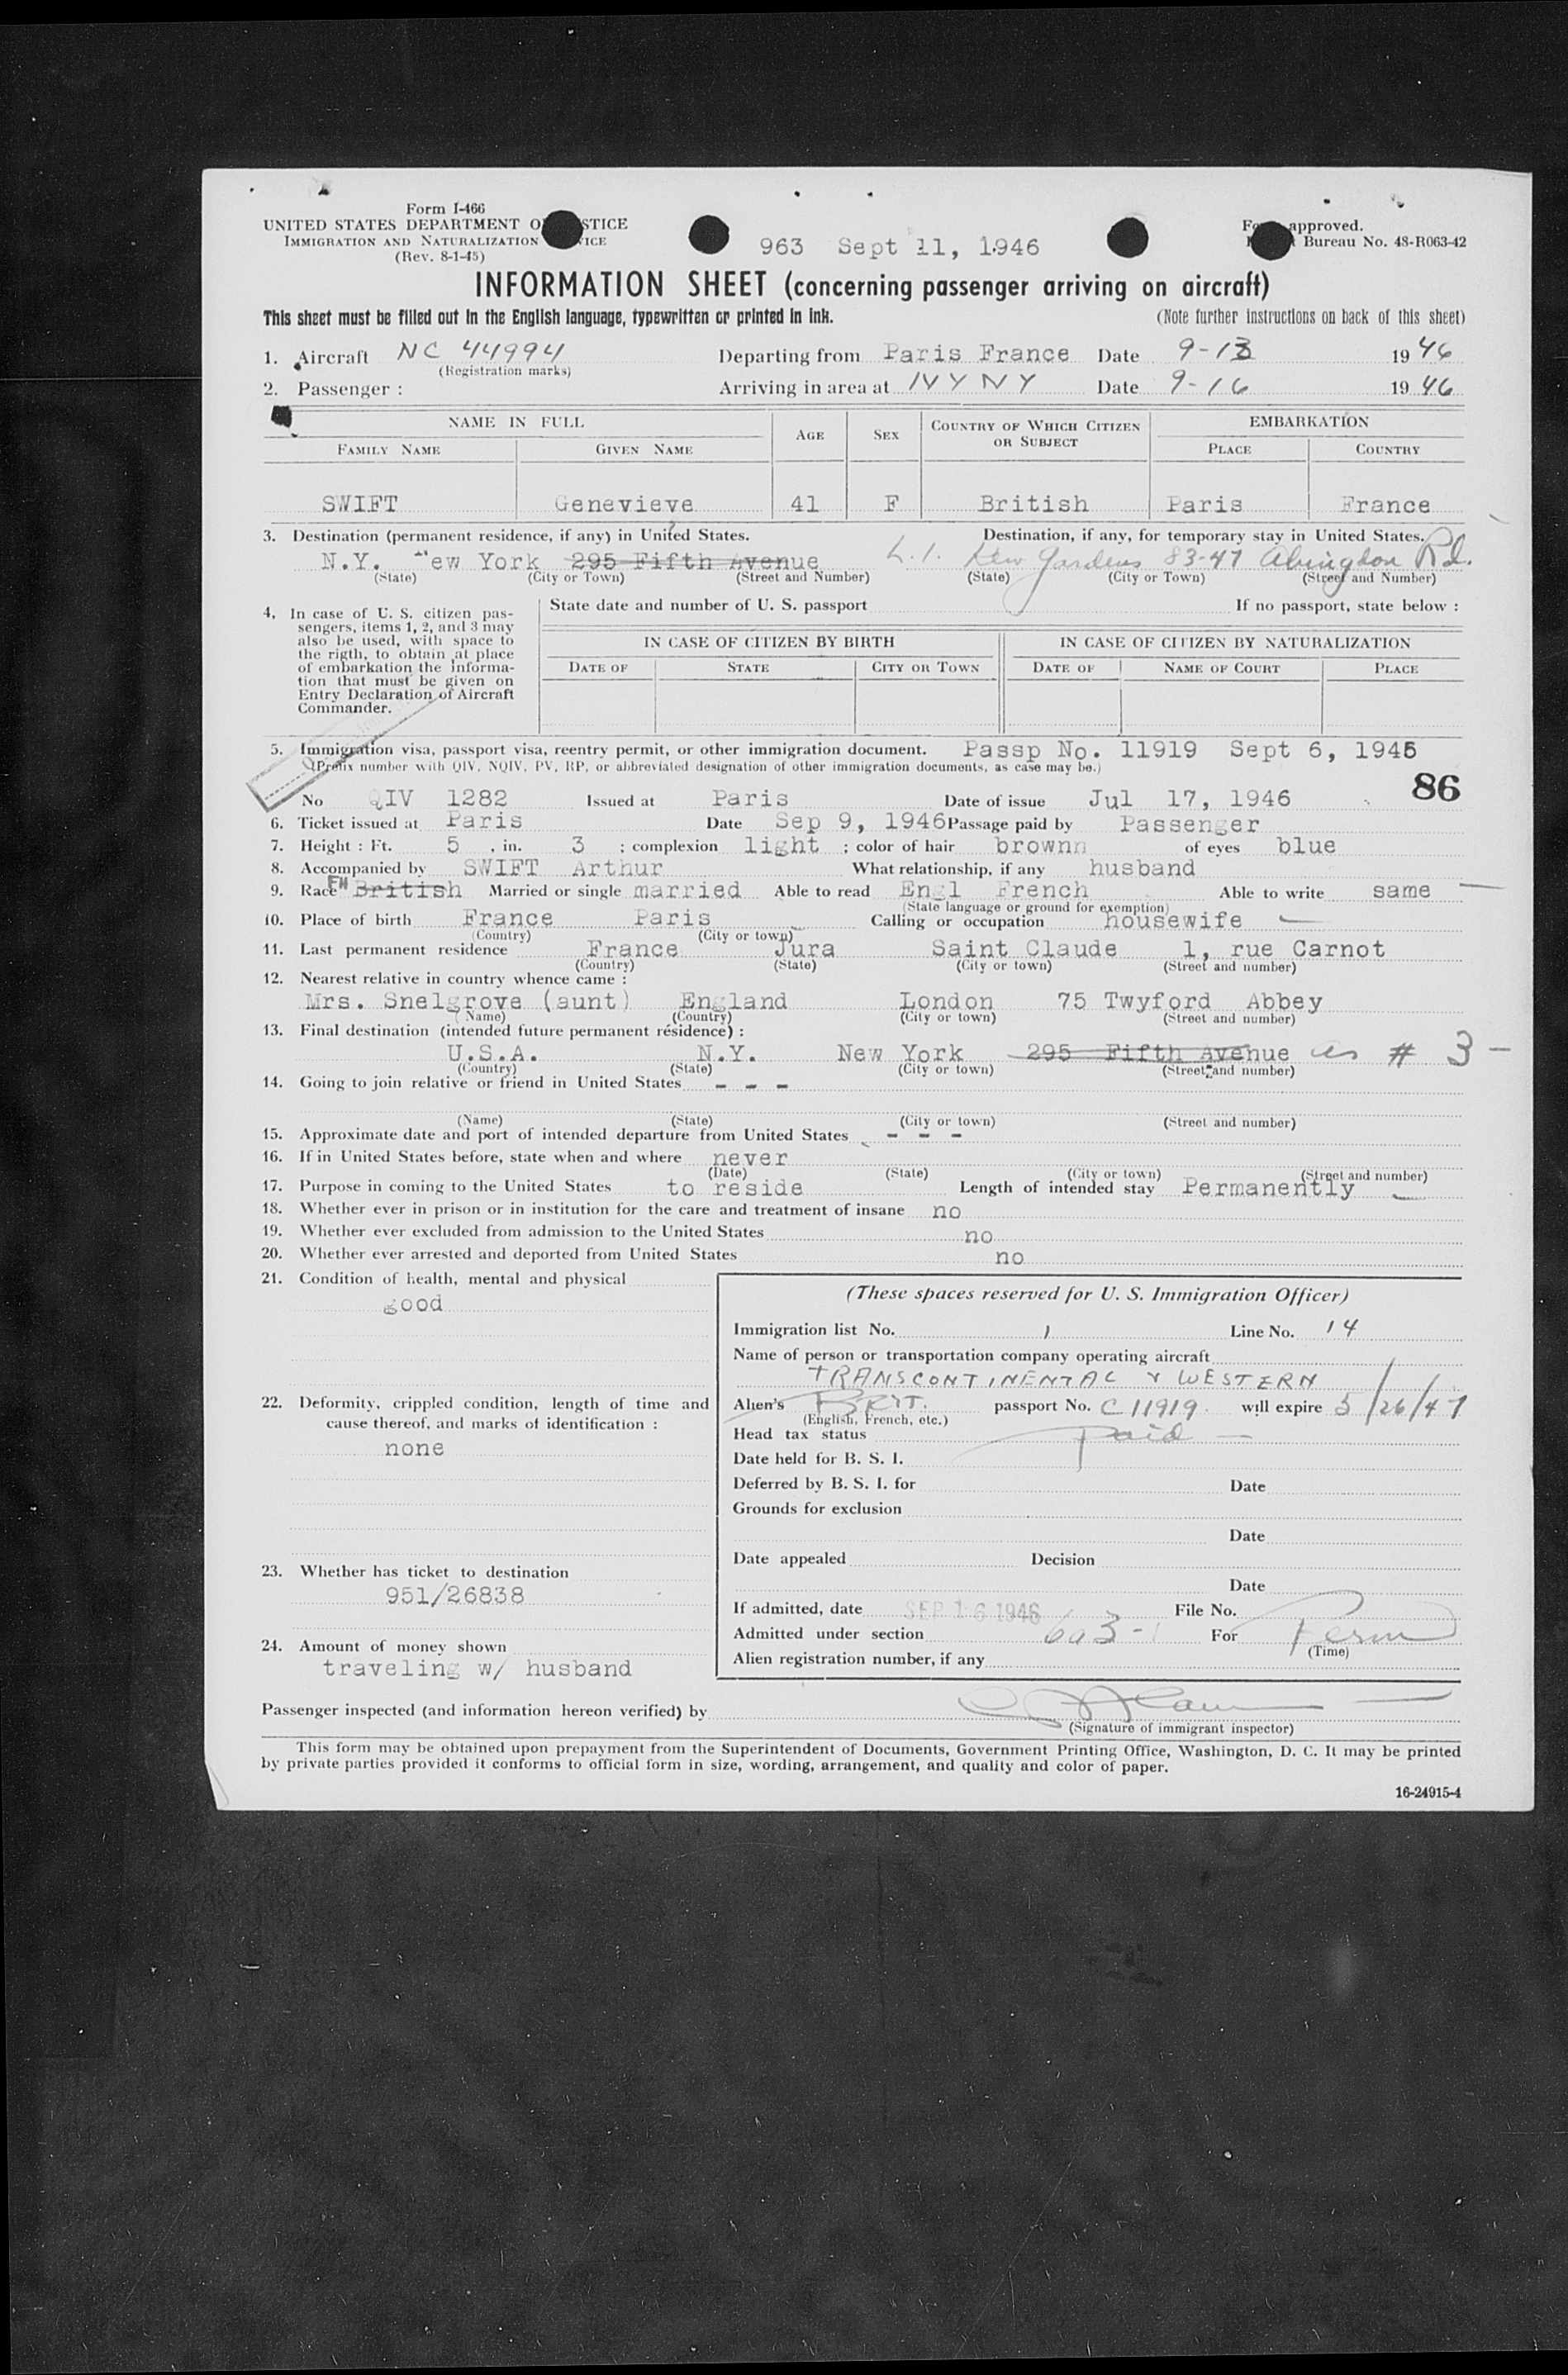 Form I-466
UNITED STATES DEPARTMENT O STICE
IMMIGRATION AND NATURALIZATION VICE
(Rev. 8-1-45)
963 Sept 11, 1946
approved.
Bureau No. 48-R063-42
INFORMATION SHEET (concerning passenger arriving on aircraft)
This sheet must be filled out in the English language, typewritten or printed in ink. (Note further instructions on back of this sheet)
1. Aircraft NC 44994 Departing from Paris France Date 9-13 1946
(Registration marks)
2. Passenger : Arriving in area at NYNY Date 9-16 1946
NAME IN FULL AGE SEX COUNTRY OF WHICH CITIZEN OR SUBJECT EMBARKATION
FAMILY NAME GIVEN NAME PLACE COUNTRY
SWIFT Genevieve 41 F British Paris France
3. Destination (permanent residence, if any) in United States. Destination, if any, for temporary stay in United States.
N.Y. ew York 295 Fifth Avenue L.I. Kew Gardens 83-47 Abingdon Rd.
(State) (City or Town) (Street and Number) (State) (City or Town) (Street and Number)
4, In case of U. S. citizen pas-
sengers, items 1, 2, and 3 may
also be used, with space to
the rigth, to obtain at place
of embarkation the informa-
tion that must be given on
Entry Declaration of Aircraft
Commander.
State date and number of U. S. passport If no passport, state below :
IN CASE OF CITIZEN BY BIRTH IN CASE OF CITIZEN BY NATURALIZATION
DATE OF STATE CITY OR TOWN DATE OF NAME OF COURT PLACE
5. Immigration visa, passport visa, reentry permit, or other immigration document. Passp No. 11919 Sept 6, 1945
(Prefix number with QIV, NQIV, PV, RP, or abbreviated designation of other immigration documents, as case may be.)
86
No QIV 1282 Issued at Paris Date of issue Jul 17, 1946
6. Ticket issued at Paris Date Sep 9, 1946 Passage paid by Passenger
7. Height : Ft. 5 , in. 3 ; complexion light ; color of hair brownn of eyes blue
8. Accompanied by SWIFT Arthur What relationship, if any husband
9. Race British Married or single married Able to read Engl French Able to write same
(State language or ground for exemption)
10. Place of birth France Paris Calling or occupation housewife
(Country) (City or town)
11. Last permanent residence France Jura Saint Claude 1, rue Carnot
(Country) (State) (City or town) (Street and number)
12. Nearest relative in country whence came :
Mrs. Snelgrove (aunt) England London 75 Twyford Abbey
(Name) (Country) (City or town) (Street and number)
13. Final destination (intended future permanent résidence) :
U.S.A. N.Y. New York 295 Fifth Avenue as # 3 -
(Country) (State) (City or town) (Street and number)
14. Going to join relative or friend in United States - - -
(Name) (State) (City or town) (Street and number)
15. Approximate date and port of intended departure from United States - - -
16. If in United States before, state when and where never
(Date) (State) (City or town) (Street and number)
17. Purpose in coming to the United States to reside Length of intended stay Permanently
18. Whether ever in prison or in institution for the care and treatment of insane no
19. Whether ever excluded from admission to the United States no
20. Whether ever arrested and deported from United States no
21. Condition of health, mental and physical
good
22. Deformity, crippled condition, length of time and
cause thereof, and marks of identification :
none
23. Whether has ticket to destination
951/26838
24. Amount of money shown
traveling w/ husband
(These spaces reserved for U. S. Immigration Officer)
Immigration list No. 1 Line No. 14
Name of person or transportation company operating aircraft
TRANSCONTINENTAL & WESTERN
Alien's BRIT. passport No. C 11919 will expire 5/26/47
(English, French, etc.)
Head tax status Paid
Date held for B. S. I.
Deferred by B. S. I. for Date
Grounds for exclusion
Date
Date appealed Decision
Date
If admitted, date SEP 16 1946 File No.
Admitted under section 6a3-1 For Perm
(Time)
Alien registration number, if any
Passenger inspected (and information hereon verified) by
(Signature of immigrant inspector)
This form may be obtained upon prepayment from the Superintendent of Documents, Government Printing Office, Washington, D. C. It may be printed
by private parties provided it conforms to official form in size, wording, arrangement, and quality and color of paper.
16-24915-4